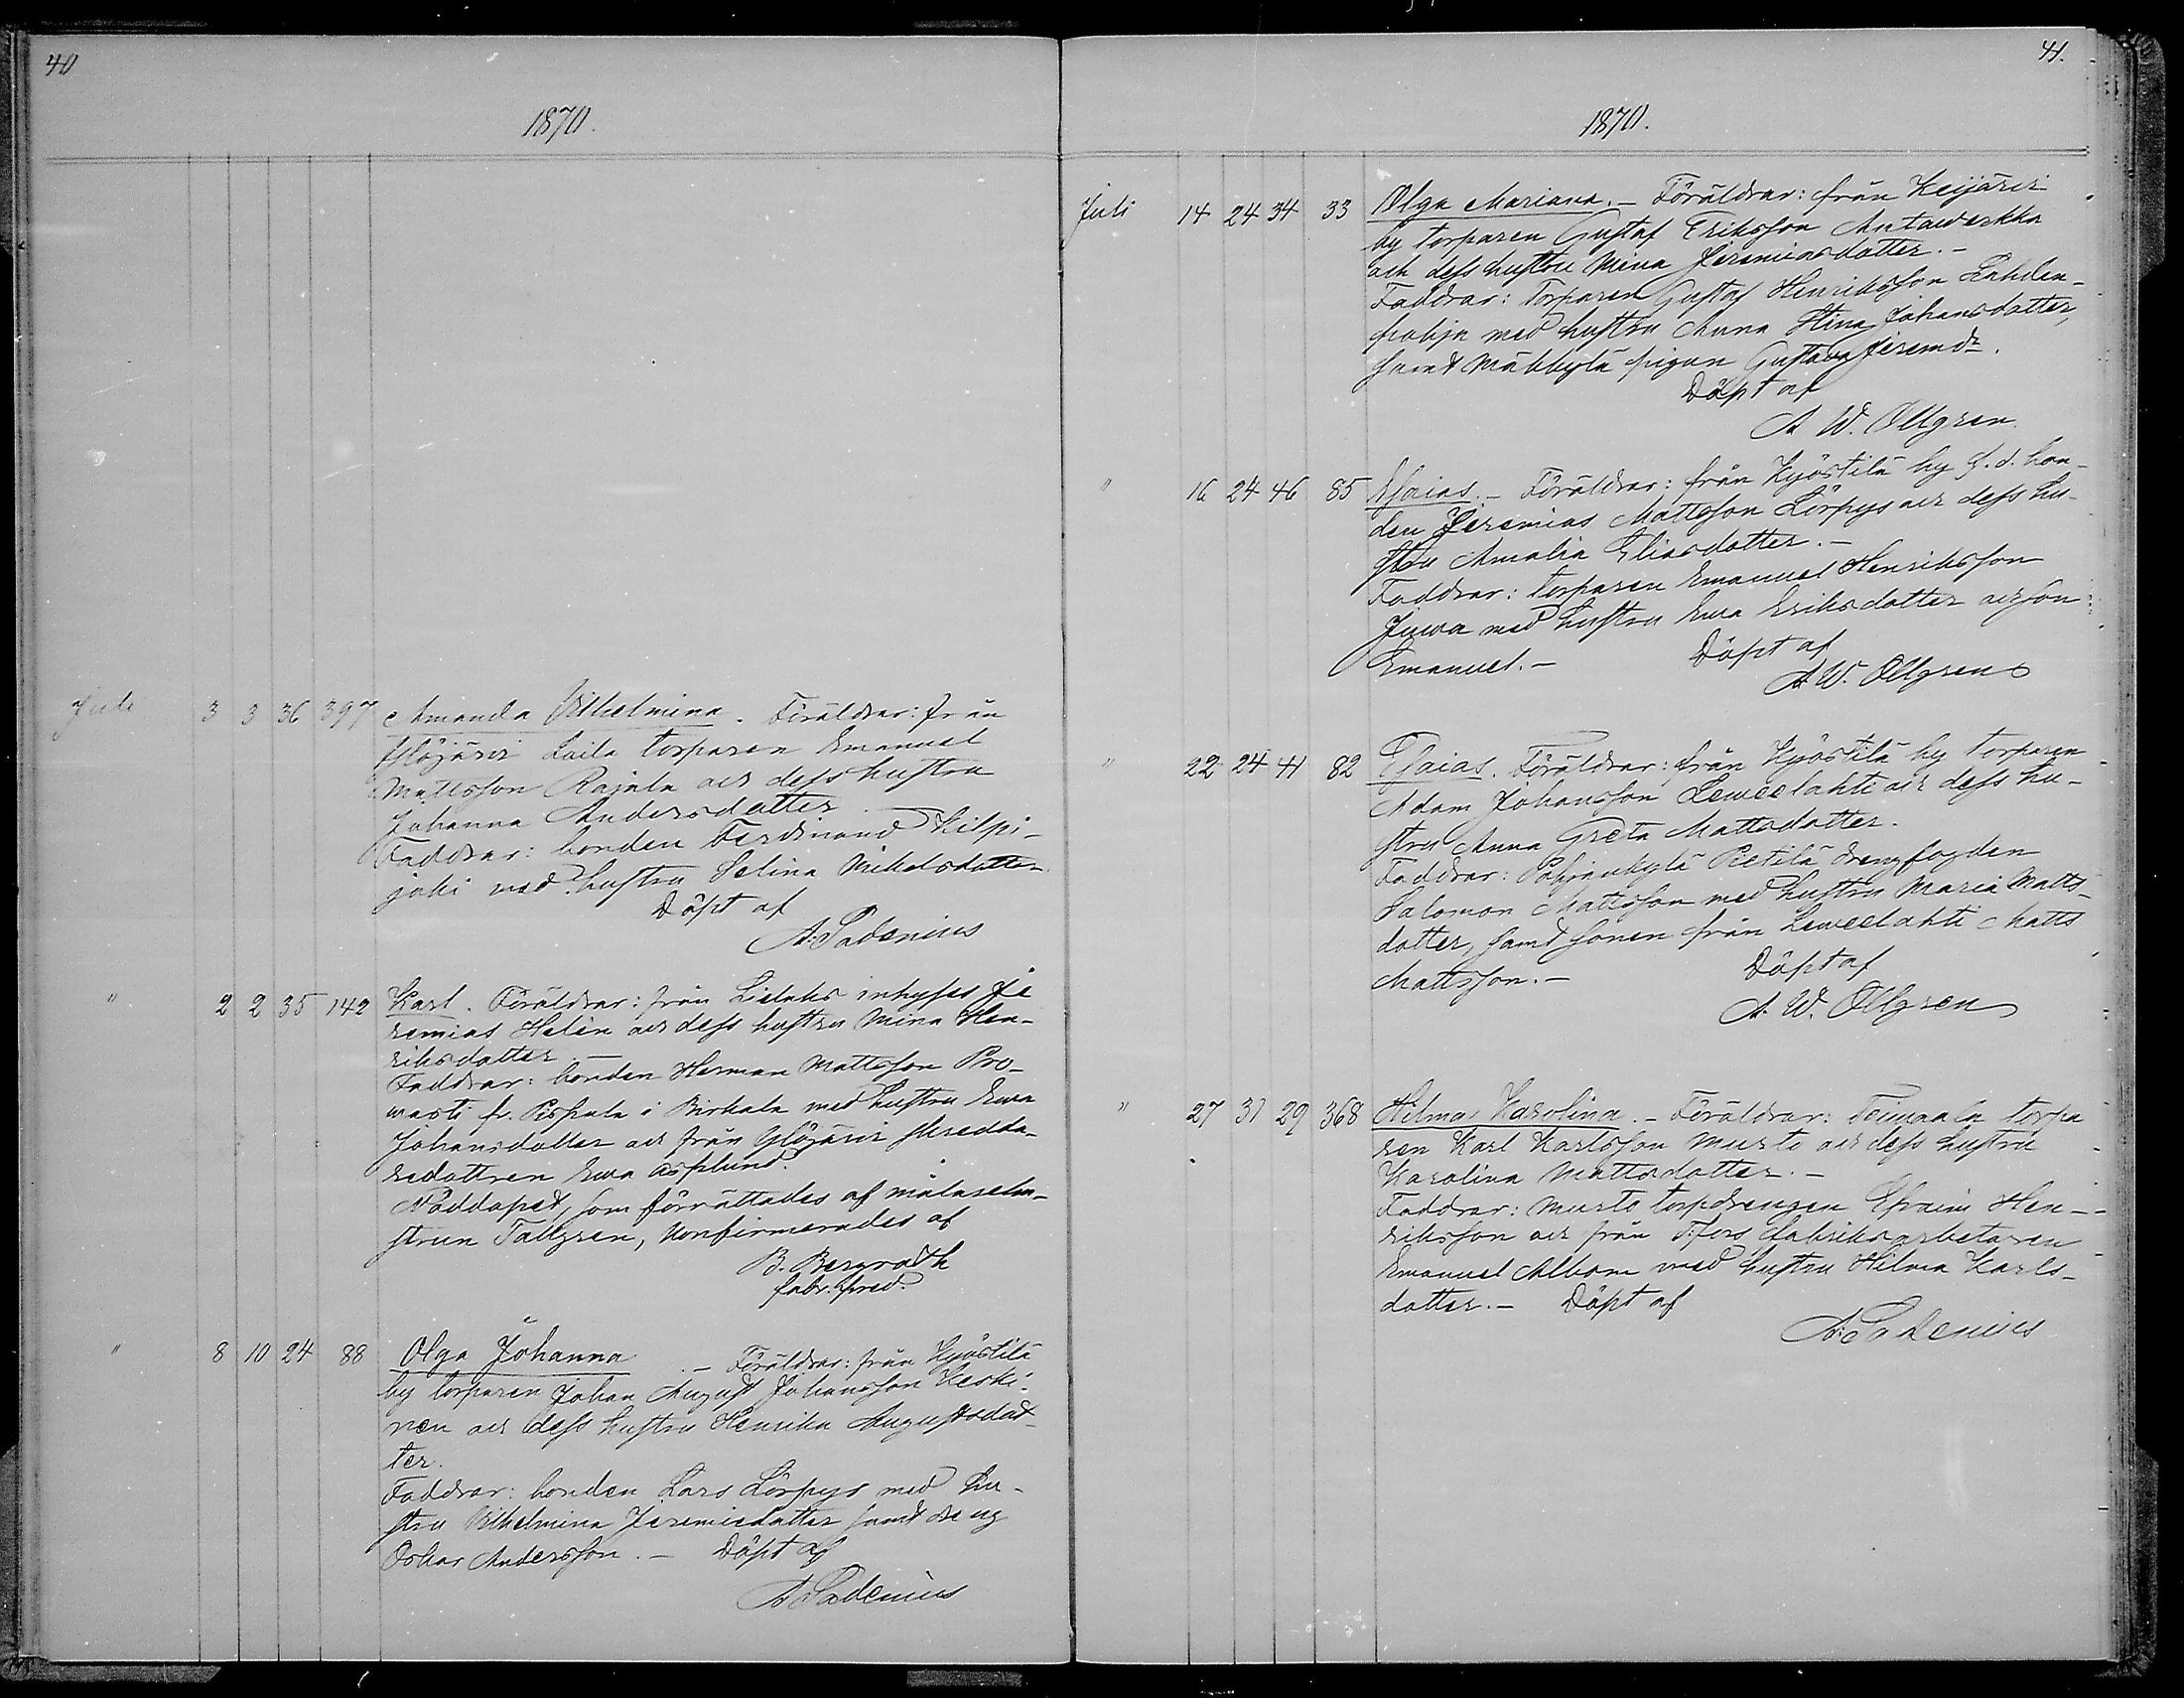 40
1870.
Juli 3 3 36 397 Amanda Vilhelmina. Föräldrar: från
Ylöjärvi Laila torparen Emanuel
Mattsson Rajala och dess hustru
Johanna Andersdotter.
Faddrar: bonden Ferdinand Kilpi-
joki med hustru Selina Mikelsdotter
Döpt af
A. Sadenius
" 2 2 35 142 Karl. Föräldrar: från Lielaks inhyses Je
remias Helén och dess hustru Mina Hen-
riksdotter.-
Faddrar: bonden Herman Mattsson Pro-
wasti fr. Pispala i Birkala med hustru Ewa
Johansdotter och från Ylöjärvi skredda-
redottren Ewa Asplund.
Nöddopet, som förrättades af målarehu-
strun Tallgren, konfirmerades af
B. Bergroth
fabr. pred.
" 8 10 24 88 Olga Johanna.- Föräldrar: från Kyöstilä
by torparen Johan August Johansson Keski-
nen och dess hustru Henrika Augustsdot-
ter.
Faddrar: bonden Lars Lörpys med hu-
stru Vilhelmina Jeremiedotter samt dreng
Oskar Andersson.- Döpt af
A. Sadenius
41.
1870.
Juli 14 24 34 33 Olga Mariana.- Föräldrar: från Keijärvi
by torparen Gustaf Eriksson Antawerkka
och dess hustru Mina Jeremiasdotter.-
Faddrar: Torparen Gustaf Henriksson Lahden-
pohja med hustru Anna Stina Johansdotter,
samt Mäkkylä pigan Gustava Jeremdr.
Döpt af
A. W. Ollgren
" 16 24 46 85 Esaias.- Föräldrar: från Kyöstilä by f.d. bon-
den Jeremias Mattsson Lörpys och dess hu-
stru Amalia Eliasdotter.-
Faddrar: torparen Emanuel Henriksson
Juwa med hustru Ewa Eriksdotter och son
Emanuel.- Döpt af
A. W. Ollgren
" 22 24 41 82 Esaias. Föräldrar: från Kyöstilä by torparen
Adam Johansson Leweelahti och dess hu-
stru Anna Greta Mattsdotter.
Faddrar: Pohjankylä Pietilä drengfogden
Salomon Mattsson med hustru Maria Matts-
dotter, samt sonen från Leweelahti Matts
Mattsson.- Döpt af
A. W. Ollgren
" 27 31 29 368 Hilma Karolina.- Föräldrar: Teimaala torpa
ren Karl Karlsson Musto och dess hustru
Karolina Mattsdotter.-
Faddrar: Musto torpdrengen Efraim Hen-
riksson och från T:fors fabriksarbetaren
Emanuel Albom med hustru Hilma Karls-
dotter.- Döpt af
A. Sadenius